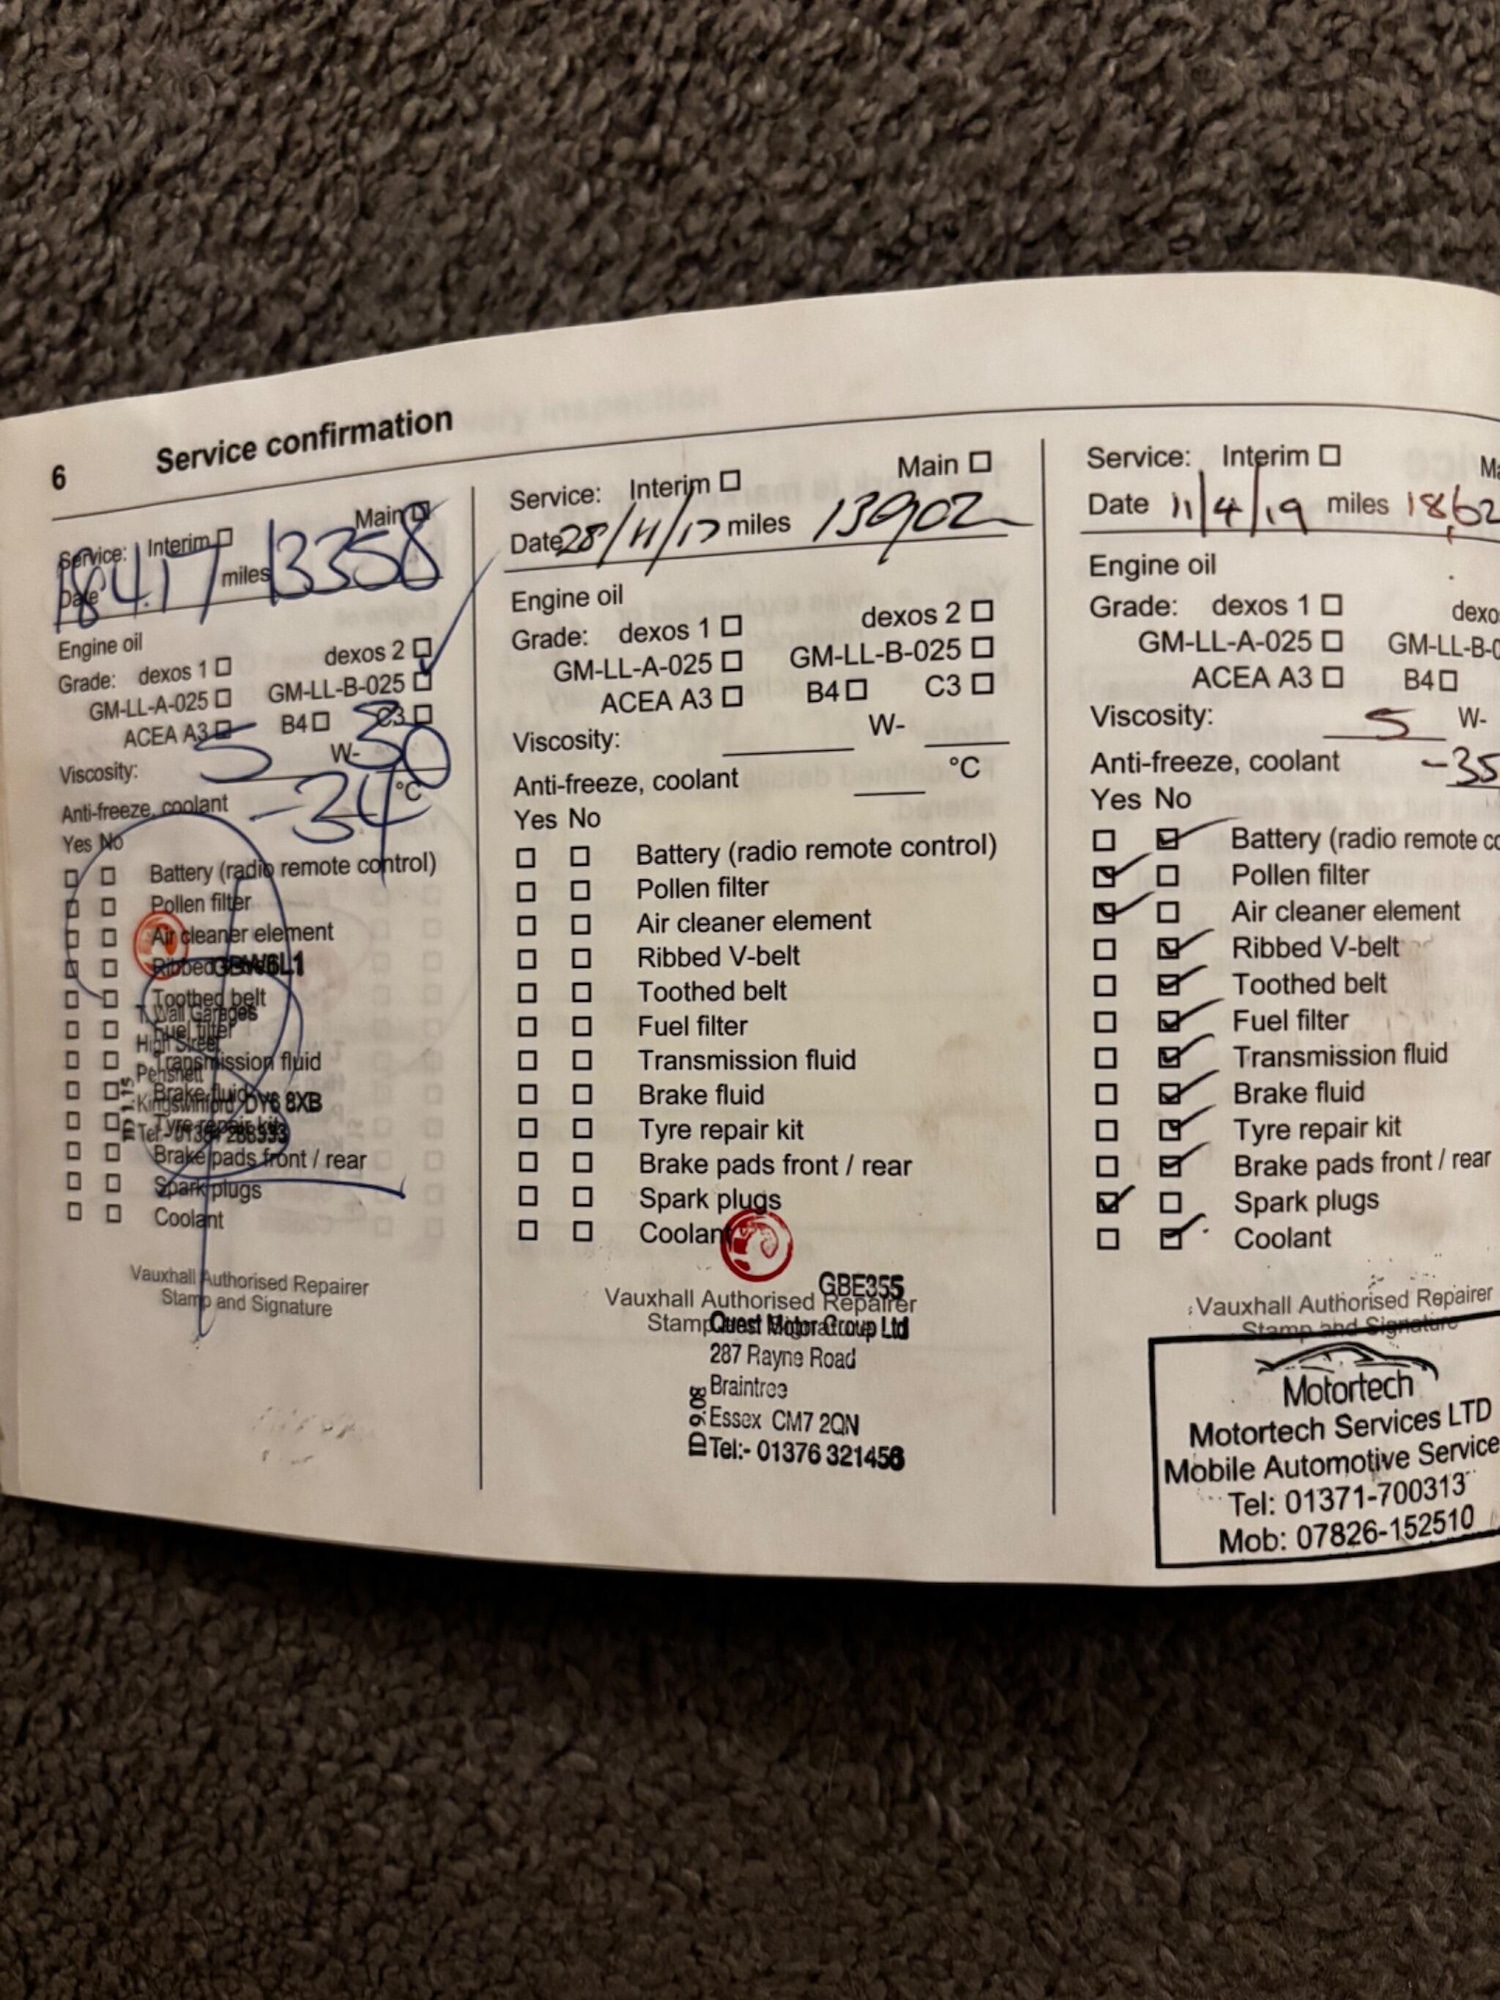 6 Service confirmation
Service: Interim Main
Date 18.4.17 miles 13358
Engine oil
Grade: dexos 1 dexos 2
GM-LL-A-025 GM-LL-B-025
ACEA A3 B4 C3
Viscosity: 5 W- 30
Anti-freeze, coolant -34 °C
Yes No
Battery (radio remote control)
Pollen filter
Air cleaner element
Ribbed
GBW6L1
Toothed belt
T. Wall Garages
Fuel filter
High Street
Transmission fluid
Pensnett
Brake fluid
Kingswinford DY6 8XB
Tyre repair kit
Tel:- 01384 288333
Brake pads front / rear
Spark plugs
Coolant
Vauxhall Authorised Repairer
Stamp and Signature
Service: Interim Main
Date 28/11/17 miles 13902
Engine oil
Grade: dexos 1 dexos 2
GM-LL-A-025 GM-LL-B-025
ACEA A3 B4 C3
Viscosity: W-
Anti-freeze, coolant °C
Yes No
Battery (radio remote control)
Pollen filter
Air cleaner element
Ribbed V-belt
Toothed belt
Fuel filter
Transmission fluid
Brake fluid
Tyre repair kit
Brake pads front / rear
Spark plugs
Coolant
GBE355
Vauxhall Authorised Repairer
Stamp
Quest Motor Group Ltd
287 Rayne Road
Braintree
Essex CM7 2QN
Tel:- 01376 321456
ID 908
Service: Interim Ma
Date 11/4/19 miles 18,62
Engine oil
Grade: dexos 1 dexo
GM-LL-A-025 GM-LL-B-0
ACEA A3 B4
Viscosity: 5 W-
Anti-freeze, coolant -35
Yes No
Battery (radio remote co
Pollen filter
Air cleaner element
Ribbed V-belt
Toothed belt
Fuel filter
Transmission fluid
Brake fluid
Tyre repair kit
Brake pads front / rear
Spark plugs
Coolant
Vauxhall Authorised Repairer
Stamp and Signature
Motortech
Motortech Services LTD
Mobile Automotive Service
Tel: 01371-700313
Mob: 07826-152510